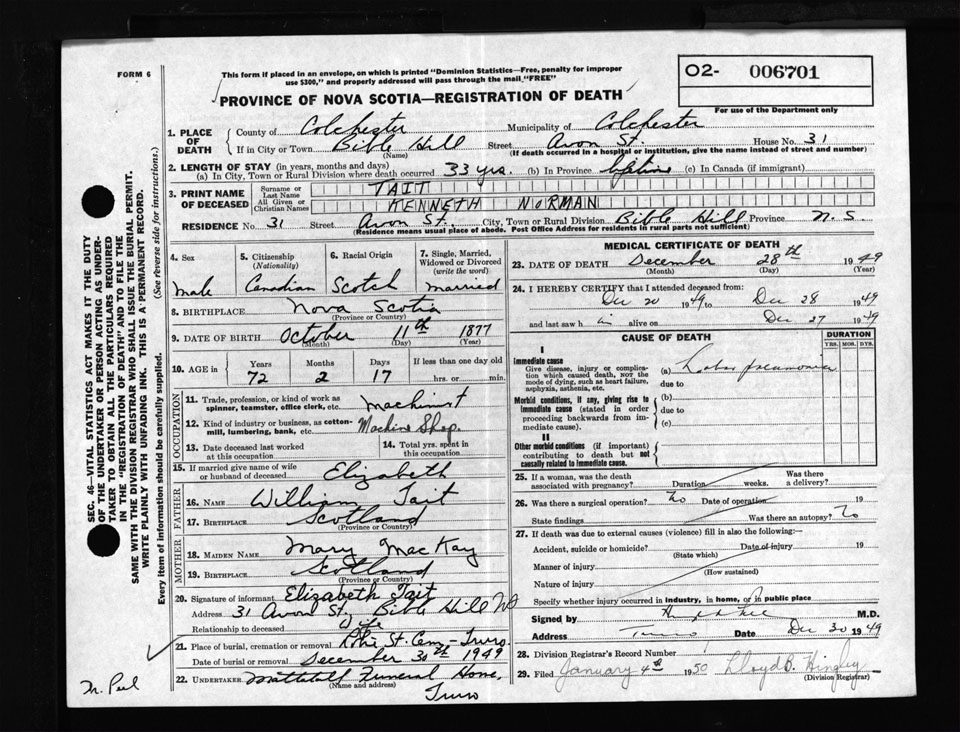 FORM 6
This form if placed in an envelope, on which is printed "Dominion Statistics—Free, penalty for improper
use $300," and properly addressed will pass through the mail "FREE"
PROVINCE OF NOVA SCOTIA—REGISTRATION OF DEATH
02- 006701
For use of the Department only
1. PLACE OF DEATH
County of Colchester Municipality of Colchester
If in City or Town Bible Hill Street Avon St. House No. 31
(Name) (If death occurred in a hospital or institution, give the name instead of street and number)
2. LENGTH OF STAY (in years, months and days)
(a) In City, Town or Rural Division where death occurred 33 yrs. (b) In Province lifetime (c) In Canada (if immigrant)
3. PRINT NAME OF DECEASED
Surname or Last Name TAIT
All Given or Christian Names KENNETH NORMAN
RESIDENCE No. 31 Street Avon St. City, Town or Rural Division Bible Hill Province N.S
(Residence means usual place of abode. Post Office Address for residents in rural parts not sufficient)
4. Sex
male
5. Citizenship (Nationality)
Canadian
6. Racial Origin
Scotch
7. Single, Married, Widowed or Divorced (write the word)
married
8. BIRTHPLACE Nova Scotia
(Province or Country)
9. DATE OF BIRTH October 11th 1877
(Month) (Day) (Year)
10. AGE in Years Months Days If less than one day old
72 2 17 hrs. or min.
OCCUPATION
11. Trade, profession, or kind of work as spinner, teamster, office clerk, etc. machinist
12. Kind of industry or business, as cotton-mill, lumbering, bank, etc. Machine Shop.
13. Date deceased last worked at this occupation
14. Total yrs. spent in this occupation
15. If married give name of wife or husband of deceased Elizabeth
FATHER
16. Name William Tait
17. Birthplace Scotland
(Province or Country)
MOTHER
18. Maiden Name Mary MacKay
19. Birthplace Scotland
(Province or Country)
20. Signature of informant Elizabeth Tait
Address 31 Avon St. Bible Hill NS
Relationship to deceased Wife
21. Place of burial, cremation or removal St. Cem - Truro.
Date of burial or removal December 30th 1949
22. UNDERTAKER Mattatall Funeral Home,
(Name and address) Truro
MEDICAL CERTIFICATE OF DEATH
23. DATE OF DEATH December 28th 1949
(Month) (Day) (Year)
24. I HEREBY CERTIFY that I attended deceased from:
Dec 20 1949 to Dec 28 1949
and last saw h im alive on Dec 27 1949
CAUSE OF DEATH
DURATION
YRS. MOS. DYS.
I
Immediate cause
Give disease, injury or complication which caused death, not the mode of dying, such as heart failure, asphyxia, asthenia, etc.
(a) Lobar pneumonia
due to
Morbid conditions, if any, giving rise to immediate cause (stated in order proceeding backwards from immediate cause).
(b)
due to
(c)
II
Other morbid conditions (if important) contributing to death but not causally related to immediate cause.
25. If a woman, was the death associated with pregnancy? Duration weeks. Was there a delivery?
26. Was there a surgical operation? No Date of operation 19
State findings Was there an autopsy? No
27. If death was due to external causes (violence) fill in also the following:—
Accident, suicide or homicide? Date of injury 19
(State which)
Manner of injury
(How sustained)
Nature of injury
Specify whether injury occurred in industry, in home, or in public place
Signed by M.D.
Address Truro Date Dec 30 1949
28. Division Registrar's Record Number
29. Filed January 4th 1950 Lloyd B. Hingley
(Division Registrar)
SEC. 46—VITAL STATISTICS ACT MAKES IT THE DUTY
OF THE UNDERTAKER OR PERSON ACTING AS UNDER-
TAKER TO OBTAIN ALL THE PARTICULARS REQUIRED
IN THE "REGISTRATION OF DEATH" AND TO FILE THE
SAME WITH THE DIVISION REGISTRAR WHO SHALL ISSUE THE BURIAL PERMIT.
WRITE PLAINLY WITH UNFADING INK. THIS IS A PERMANENT RECORD.
Every item of information should be carefully supplied. (See reverse side for instructions.)